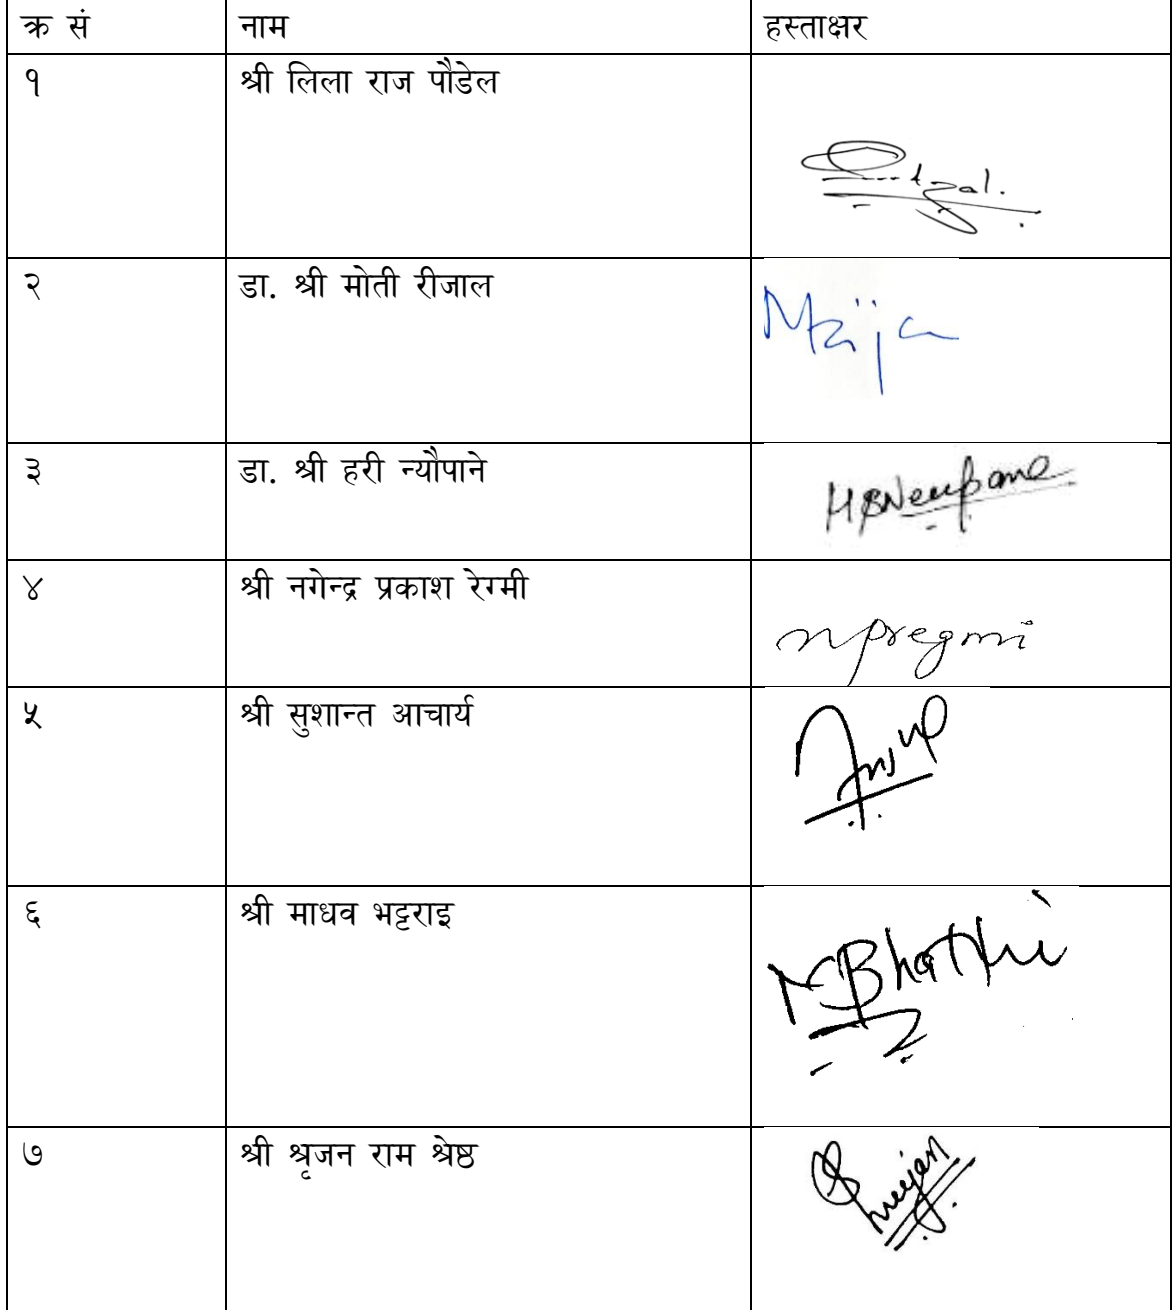 क्र सं नाम हस्ताक्षर
१ श्री लिला राज पौडेल
२ डा. श्री मोती रीजाल
३ डा. श्री हरी न्यौपाने HBNeupane
४ श्री नगेन्द्र प्रकाश रेग्मी npregmi
५ श्री सुशान्त आचार्य
६ श्री माधव भट्टराइ
७ श्री श्रृजन राम श्रेष्ठ